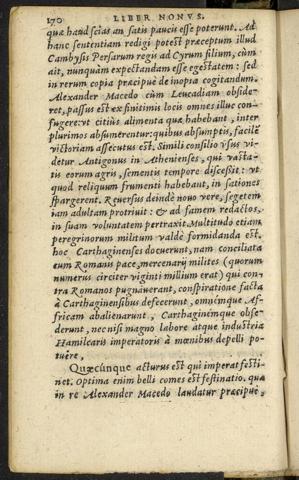 170 LIBER NONVS.
quæ haud scias an satis paucis esse poterunt. Ad
hanc sententiam redigi potest præceptum illud
Cambysis Persarum regis ad Cyrum filium, cùm
ait, nunquam expectandam esse egestatem: sed
in rerum copia præcipuè de inopia cogitandum.
Alexander Macedo cùm Leucadiam obside-
ret, passus est ex finitimis locis omnes illuc con-
fugere: vt citiùs alimenta quæ habebant, inter
plurimos absumerentur: quibus absumptis, facilè
victoriam assecutus est. Simili consilio vsus vi-
detur Antigonus in Athenienses, qui vasta-
tis eorum agris, sementis tempore discessit: vt
quod reliquum frumenti habebant, in sationes
spargerent. Reuersus deinde nouo vere, segetem
iam adultam protriuit: & ad famem redactos,
in suam voluntatem pertraxit. Multitudo etiam
peregrinorum militum valdè formidanda est.
hoc Carthaginenses docuerunt, nam conciliata
cum Romanis pace, mercenarij milites (quorum
numerus circiter viginti millium erat) qui con-
tra Romanos pugnauerant, conspiratione facta
à Carthaginensibus defecerunt, omnémque Af-
fricam abalienarunt, Carthaginémque obse-
derunt, nec nisi magno labore atque industria
Hamilcaris imperatoris à mœnibus depelli po-
tuêre.
Quæcúnque acturus est qui imperat festi-
net. Optima enim belli comes est festinatio. qua
in re Alexander Macedo laudatur præcipuè,